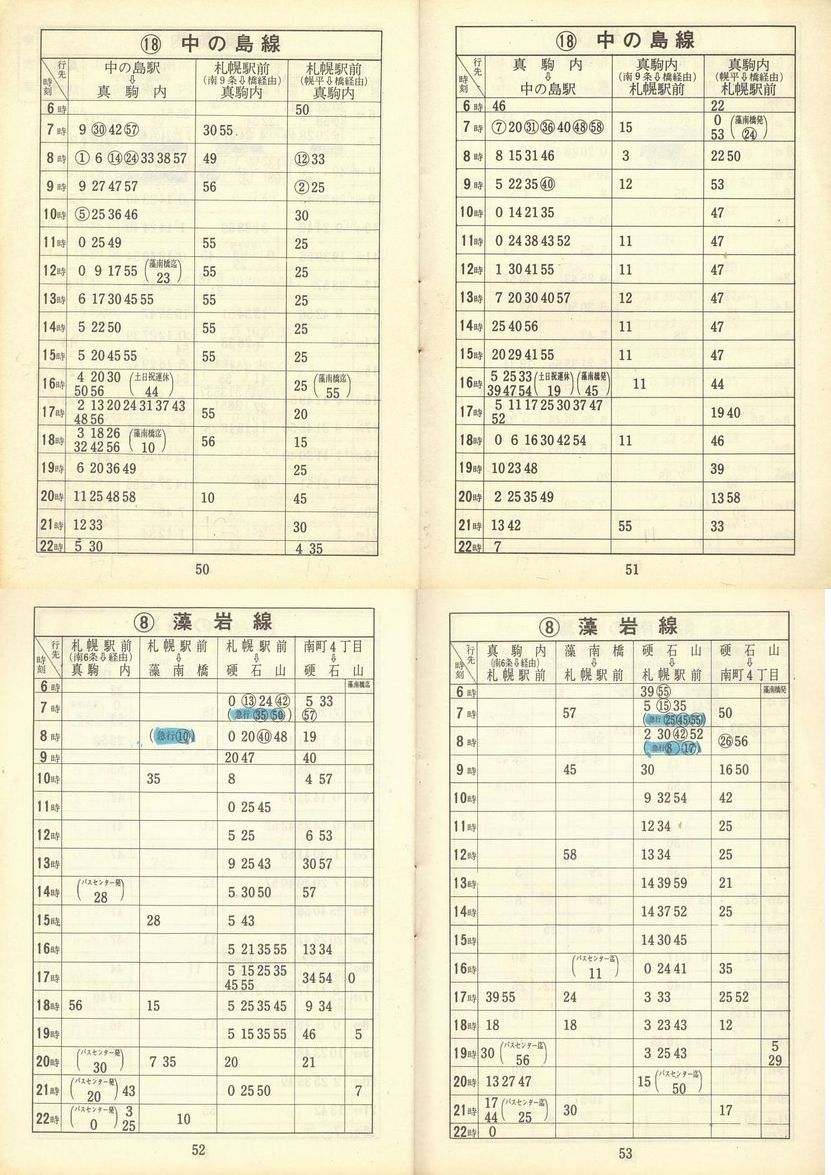 ⑱ 中の島線
行先 時刻 中の島駅 ⇩ 真駒内 札幌駅前 (南9条⇩橋経由) 真駒内 札幌駅前 (幌平⇩橋経由) 真駒内
6時 50
7時 9 ㉚ 42 57 30 55
8時 ① 6 ⑭ ㉔ 33 38 57 49 ⑫ 33
9時 9 27 47 57 56 ② 25
10時 ⑤ 25 36 46 30
11時 0 25 49 55 25
12時 0 9 17 55 (藻南橋迄 23) 55 25
13時 6 17 30 45 55 55 25
14時 5 22 50 55 25
15時 5 20 45 55 55 25
16時 4 20 30 50 56 (土日祝運休 44) 25 (藻南橋迄 55)
17時 2 13 20 24 31 37 43 48 56 55 20
18時 3 18 26 32 42 56 (藻南橋迄 10) 56 15
19時 6 20 36 49 25
20時 11 25 48 58 10 45
21時 12 33 30
22時 5 30 4 35
50
⑱ 中の島線
行先 時刻 真駒内 ⇩ 中の島駅 真駒内 (南9条⇩橋経由) 札幌駅前 真駒内 (幌平⇩橋経由) 札幌駅前
6時 46 22
7時 ⑦ 20 ㉛ ㊱ 40 ㊽ 58 15 0 53 (藻南橋発 ㉔)
8時 8 15 31 46 3 22 50
9時 5 22 35 ㊵ 12 53
10時 0 14 21 35 47
11時 0 24 38 43 52 11 47
12時 1 30 41 55 11 47
13時 7 20 30 40 57 12 47
14時 25 40 56 11 47
15時 20 29 41 55 11 47
16時 5 25 33 39 47 54 (土日祝運休 19) (藻南橋発 45) 11 44
17時 5 11 17 25 30 37 47 52 19 40
18時 0 6 16 30 42 54 11 46
19時 10 23 48 39
20時 2 25 35 49 13 58
21時 13 42 55 33
22時 7
51
⑧ 藻岩線
行先 時刻 札幌駅前 (南6条⇩経由) 真駒内 札幌駅前 ⇩ 藻南橋 札幌駅前 ⇩ 硬石山 南町4丁目 ⇩ 硬石山
6時 藻南橋迄
7時 0 ⑬ 24 ㊷ (急行 ㉟ ㊿) 5 33 57
8時 (急行 ⑩) 0 20 ㊵ 48 19
9時 20 47 40
10時 35 8 4 57
11時 0 25 45
12時 5 25 6 53
13時 9 25 43 30 57
14時 (バスセンター発 28) 5 30 50 57
15時 28 5 43
16時 5 21 35 55 13 34
17時 5 15 25 35 45 55 34 54 0
18時 56 15 5 25 35 45 9 34
19時 5 15 35 55 46 5
20時 (バスセンター発 30) 7 35 20 21
21時 (バスセンター発 20) 43 0 25 50 7
22時 (バスセンター発 0) 3 25 10
52
⑧ 藻岩線
行先 時刻 真駒内 (南6条⇩経由) 札幌駅前 藻南橋 ⇩ 札幌駅前 硬石山 ⇩ 札幌駅前 硬石山 ⇩ 南町4丁目
6時 39 55 藻南橋発
7時 57 5 ⑮ 35 (急行 ㉕ ㊺ 55) 50
8時 2 30 ㊷ 52 (急行 8 ⑰) ㉖ 56
9時 45 30 16 50
10時 9 32 54 42
11時 12 34 25
12時 58 13 34 25
13時 14 39 59 21
14時 14 37 52 25
15時 14 30 45
16時 (バスセンター迄 11) 0 24 41 35
17時 39 55 24 3 33 25 52
18時 18 18 3 23 43 12
19時 30 (バスセンター迄 56) 3 25 43 5 29
20時 13 27 47 15 (バスセンター迄 50)
21時 17 44 (バスセンター迄 25) 30 17
22時 0
53